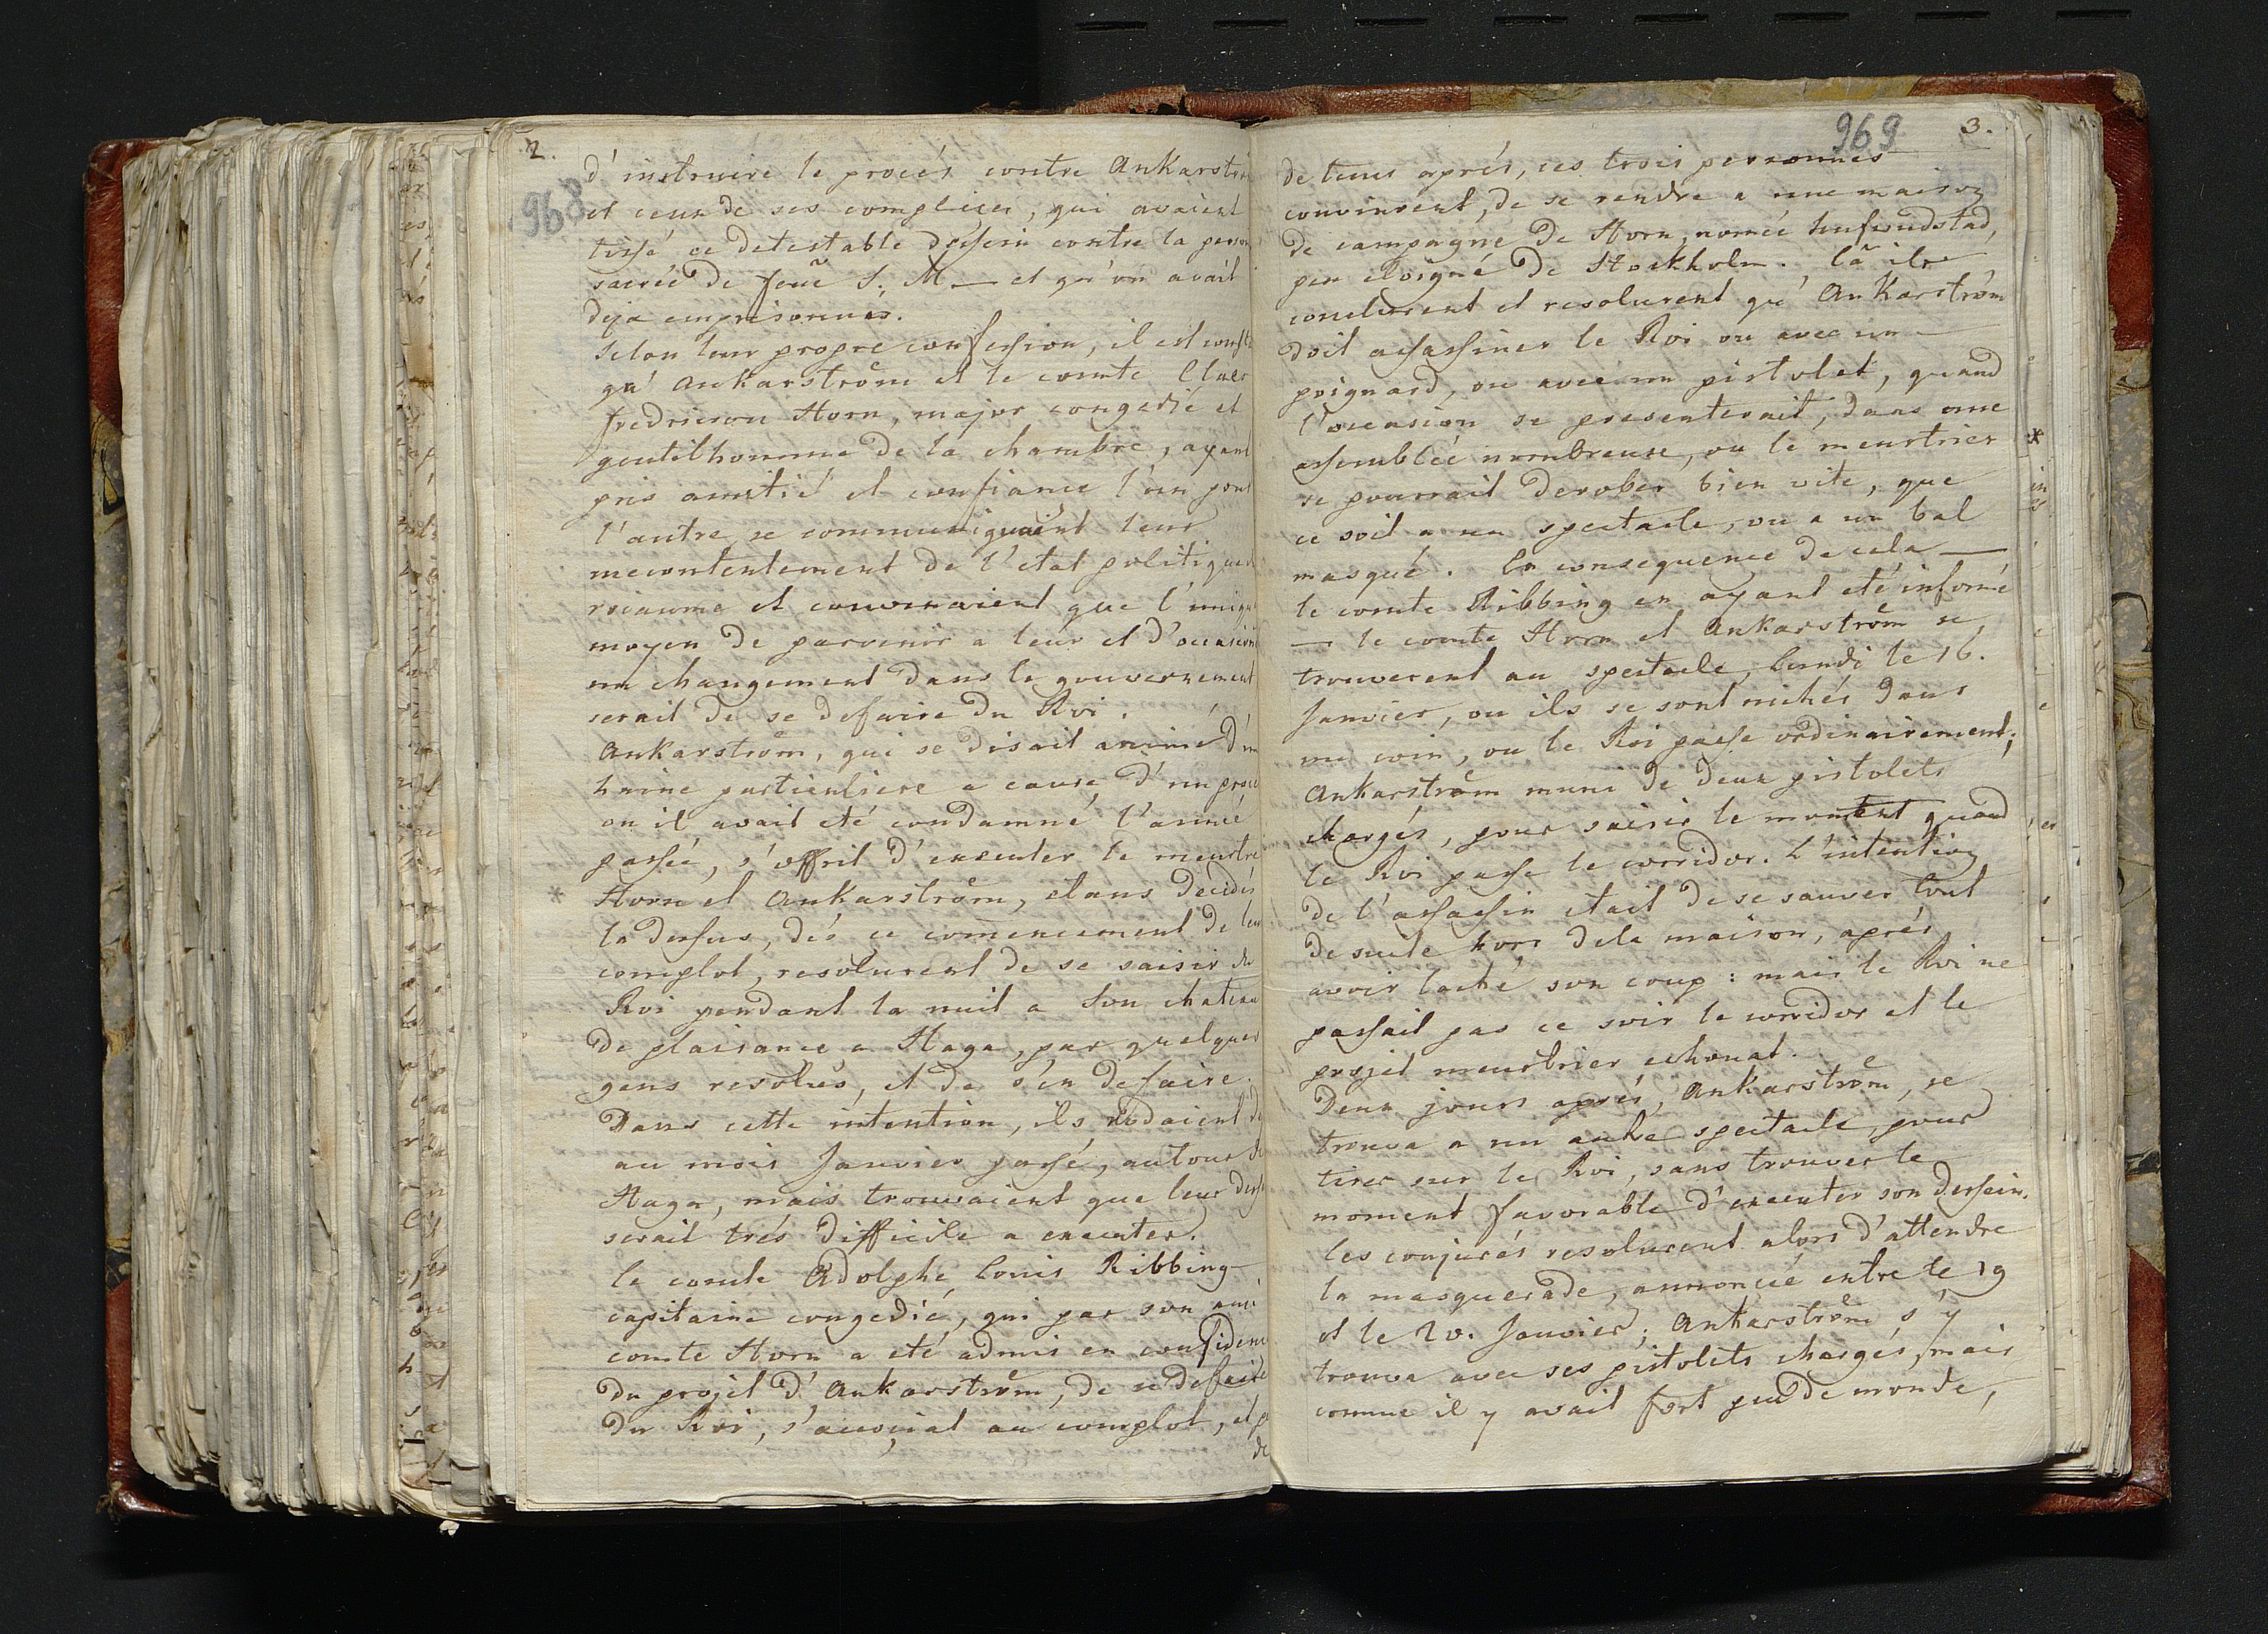 2.
968
d'instruire le procés contre Ankarströ
et ceux de ses complices, qui avaient
tissé ce detestable dessein contre la person
sacrée de feuë S. M — et qu'on avait
deja emprisonnés.
Selon leur propre confession, il est const
qu'Ankarström et le comte Claes
fredricson Horn, major congedié et
gentilhomme de la chambre, ayant
pris amitié et confiance l'un pour
l'autre, se communiquaient leur
mecontentement de l'etat politique
roiaume et convenaient que l'uniqu
moyen de parvenir a leur et d'occasion
un changement dans le gouvernement
serait de se defaire du Roi.
Ankarström, qui se disait animé d'un
haine particuliere a cause d'un proce
ou il avait eté condamné l'année
passée, s'offrit d'executer le meurtre
* Horn et Ankarström, etans decidés
la dessus, dés ce comencement de leu
complot, resolurent de se saisir du
Roi pendant la nuit a son chateau
de plaisance a Haga, par quelques
gens resolus, et de s'en defaire.
Dans cette intention, ils rodaient de
au mois Janvier passé, autour de
Haga, mais trouvaient que leur dess
serait trés difficile a executer.
le comte Adolphe Louis Ribbing
capitaine congedié, qui par son ami
comte Horn a eté admis en confidenc
du projet d'Ankarström, de se defaire
du Roi, s'associat au complot, et p
de
969
3.
de tems aprés, ces trois personnes
convinrent, de se rendre a une maison
de campagne de Horn, nomée hufvudstad,
peu eloigné de Stockholm. là ils
conclurent et resolurent qu'Ankarström
doit assassiner le Roi ou avec un —
poignard, ou avec un pistolet, quand
l'occasion se presenterait, dans une
assemblée nombreuse, ou le meurtrier
se pourrait derober bien vite, que
ce soit a un spectacle, ou a un bal
masqué. En consequence de cela —
le comte Ribbing en ayant eté informé
— le comte Horn et Ankarström se
trouverent au spectacle, Lundi le 16.
Janvier, ou ils se sont nichés dans
un coin, ou le Roi passe ordinairement;
Ankarström muni de deux pistolets
chargés, pour saisir le moment quand
le Roi passe le corridor. L'intention
de l'assassin etait de se sauver tout
de suite hors de la maison, aprés
avoir laché son coup: mais le Roi ne
passait pas ce soir le corridor et le
projet meurtrier echouat.
Deux jours aprés, Ankarström, se
trouva a un autre spectacle, pour
tirer sur le Roi, sans trouver le
moment favorable d'executer son dessein.
les conjurés resolurent alors d'attendre
la masquerade, annoncée entre le 19
et le 20. Janvier; Ankarström s'y
trouva avec ses pistolets chargés, mais
comme il y avait fort peu de monde,